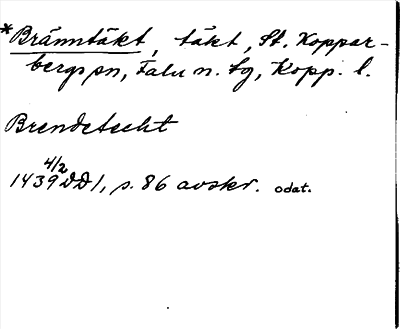 *Bränntäkt, täkt, St. Koppar-
bergs sn, Falu n. tg, Kopp. l.
Brendetecht
4/2
1439 DD 1, s. 86 avskr. odat.